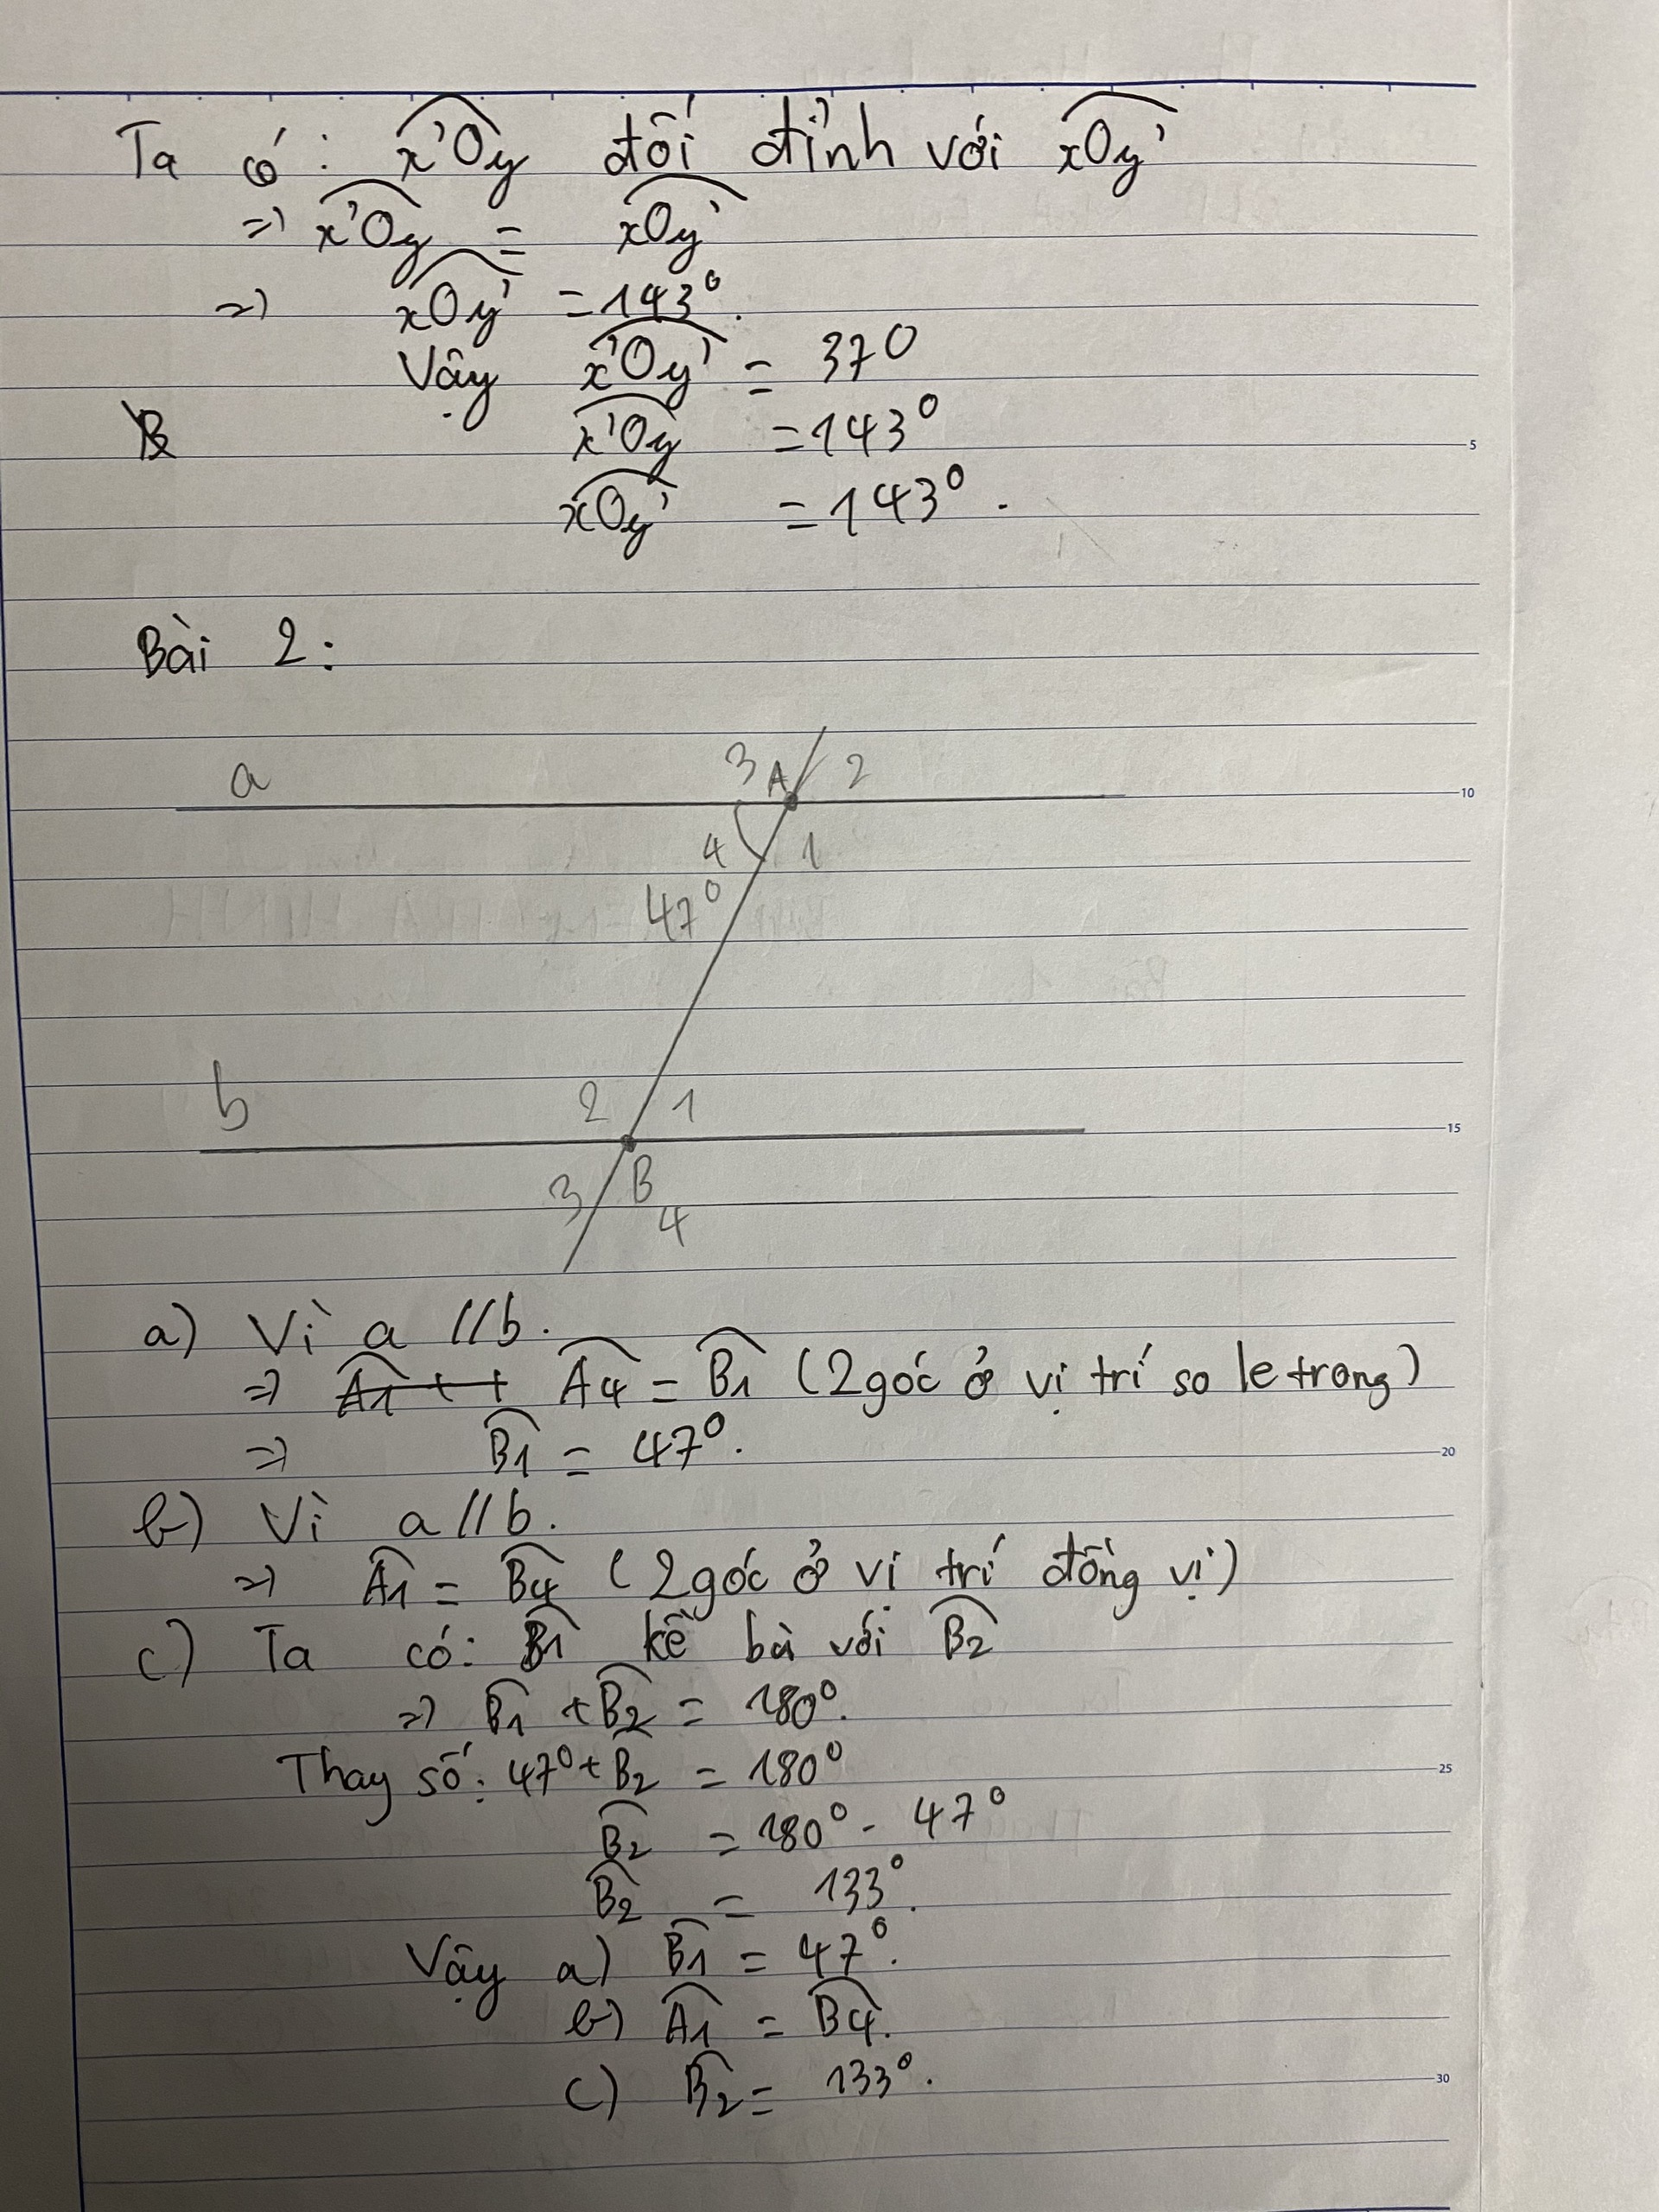 Ta có: x'Oy đối đỉnh với xOy'
=> x'Oy = xOy'
=> xOy' = 143°.
Vậy x'Oy' = 37°
x'Oy = 143°
5
xOy' = 143°.
Bài 2:
3 A 2
a
10
4 1
47°
b 2 1
15
3 B
4
a) Vì a // b.
=> A1 + + A4 = B1 (2 góc ở vị trí so le trong)
=> B1 = 47°.
20
b) Vì a // b.
=> A1 = B4 (2 góc ở vi trí đồng vị)
c) Ta có: B1 kề bà với B2
=> B1 + B2 = 180°.
Thay số: 47° + B2 = 180°
25
B2 = 180° - 47°
B2 = 133°.
Vậy a) B1 = 47°.
b) A1 = B4.
c) B2 = 133°.
30